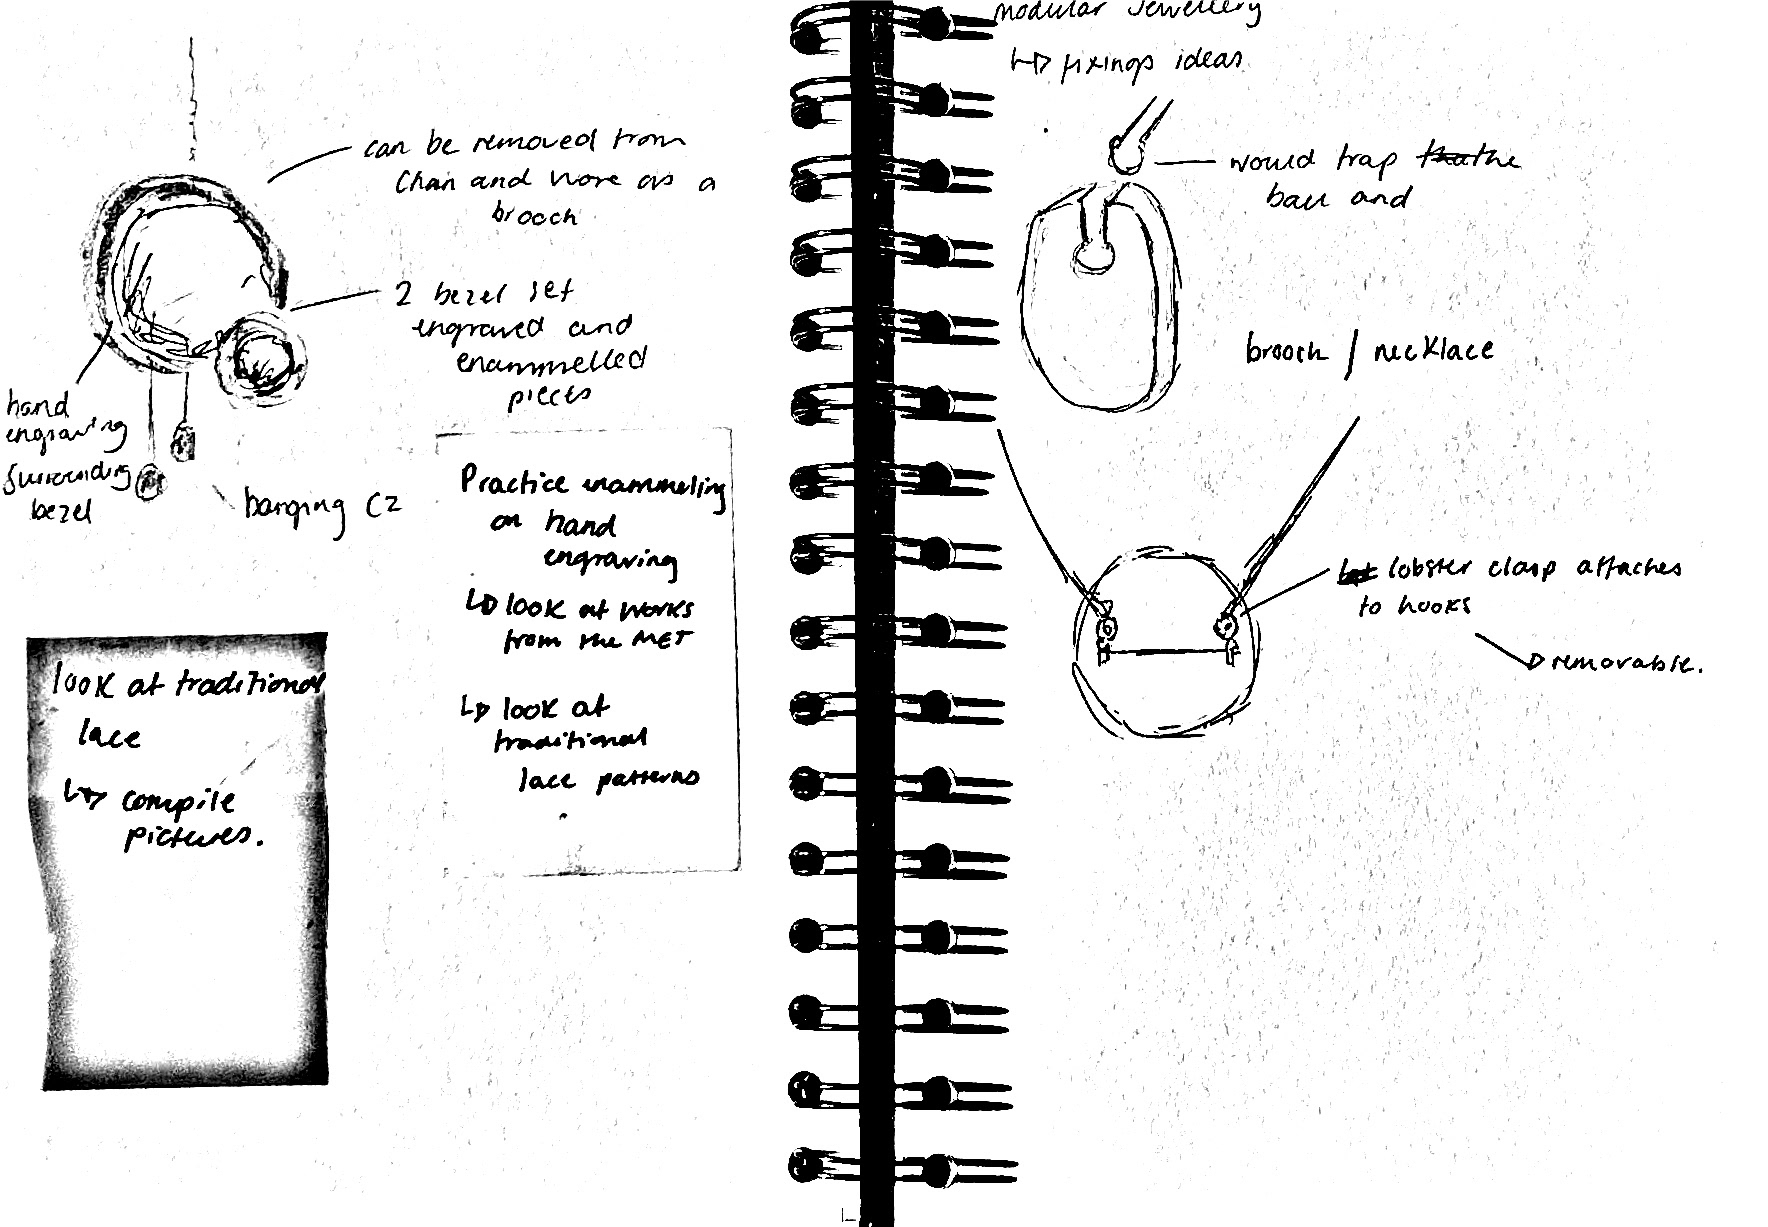 can be removed from
Chan and wore as a
brooch
2 bezel set
engraved and
enammelled
pieces
hand
engraving
surrounding
bezel
hanging CZ
Practice enammeling
on hand
engraving
↳ look at works
from the MET
↳ look at
traditional
lace patterns
look at traditional
lace
↳ compile
pictures.
modular jewellery
↳ fixings ideas
would trap the
ball and
brooch / necklace
lobster clasp attaches
to hooks
→ removable.